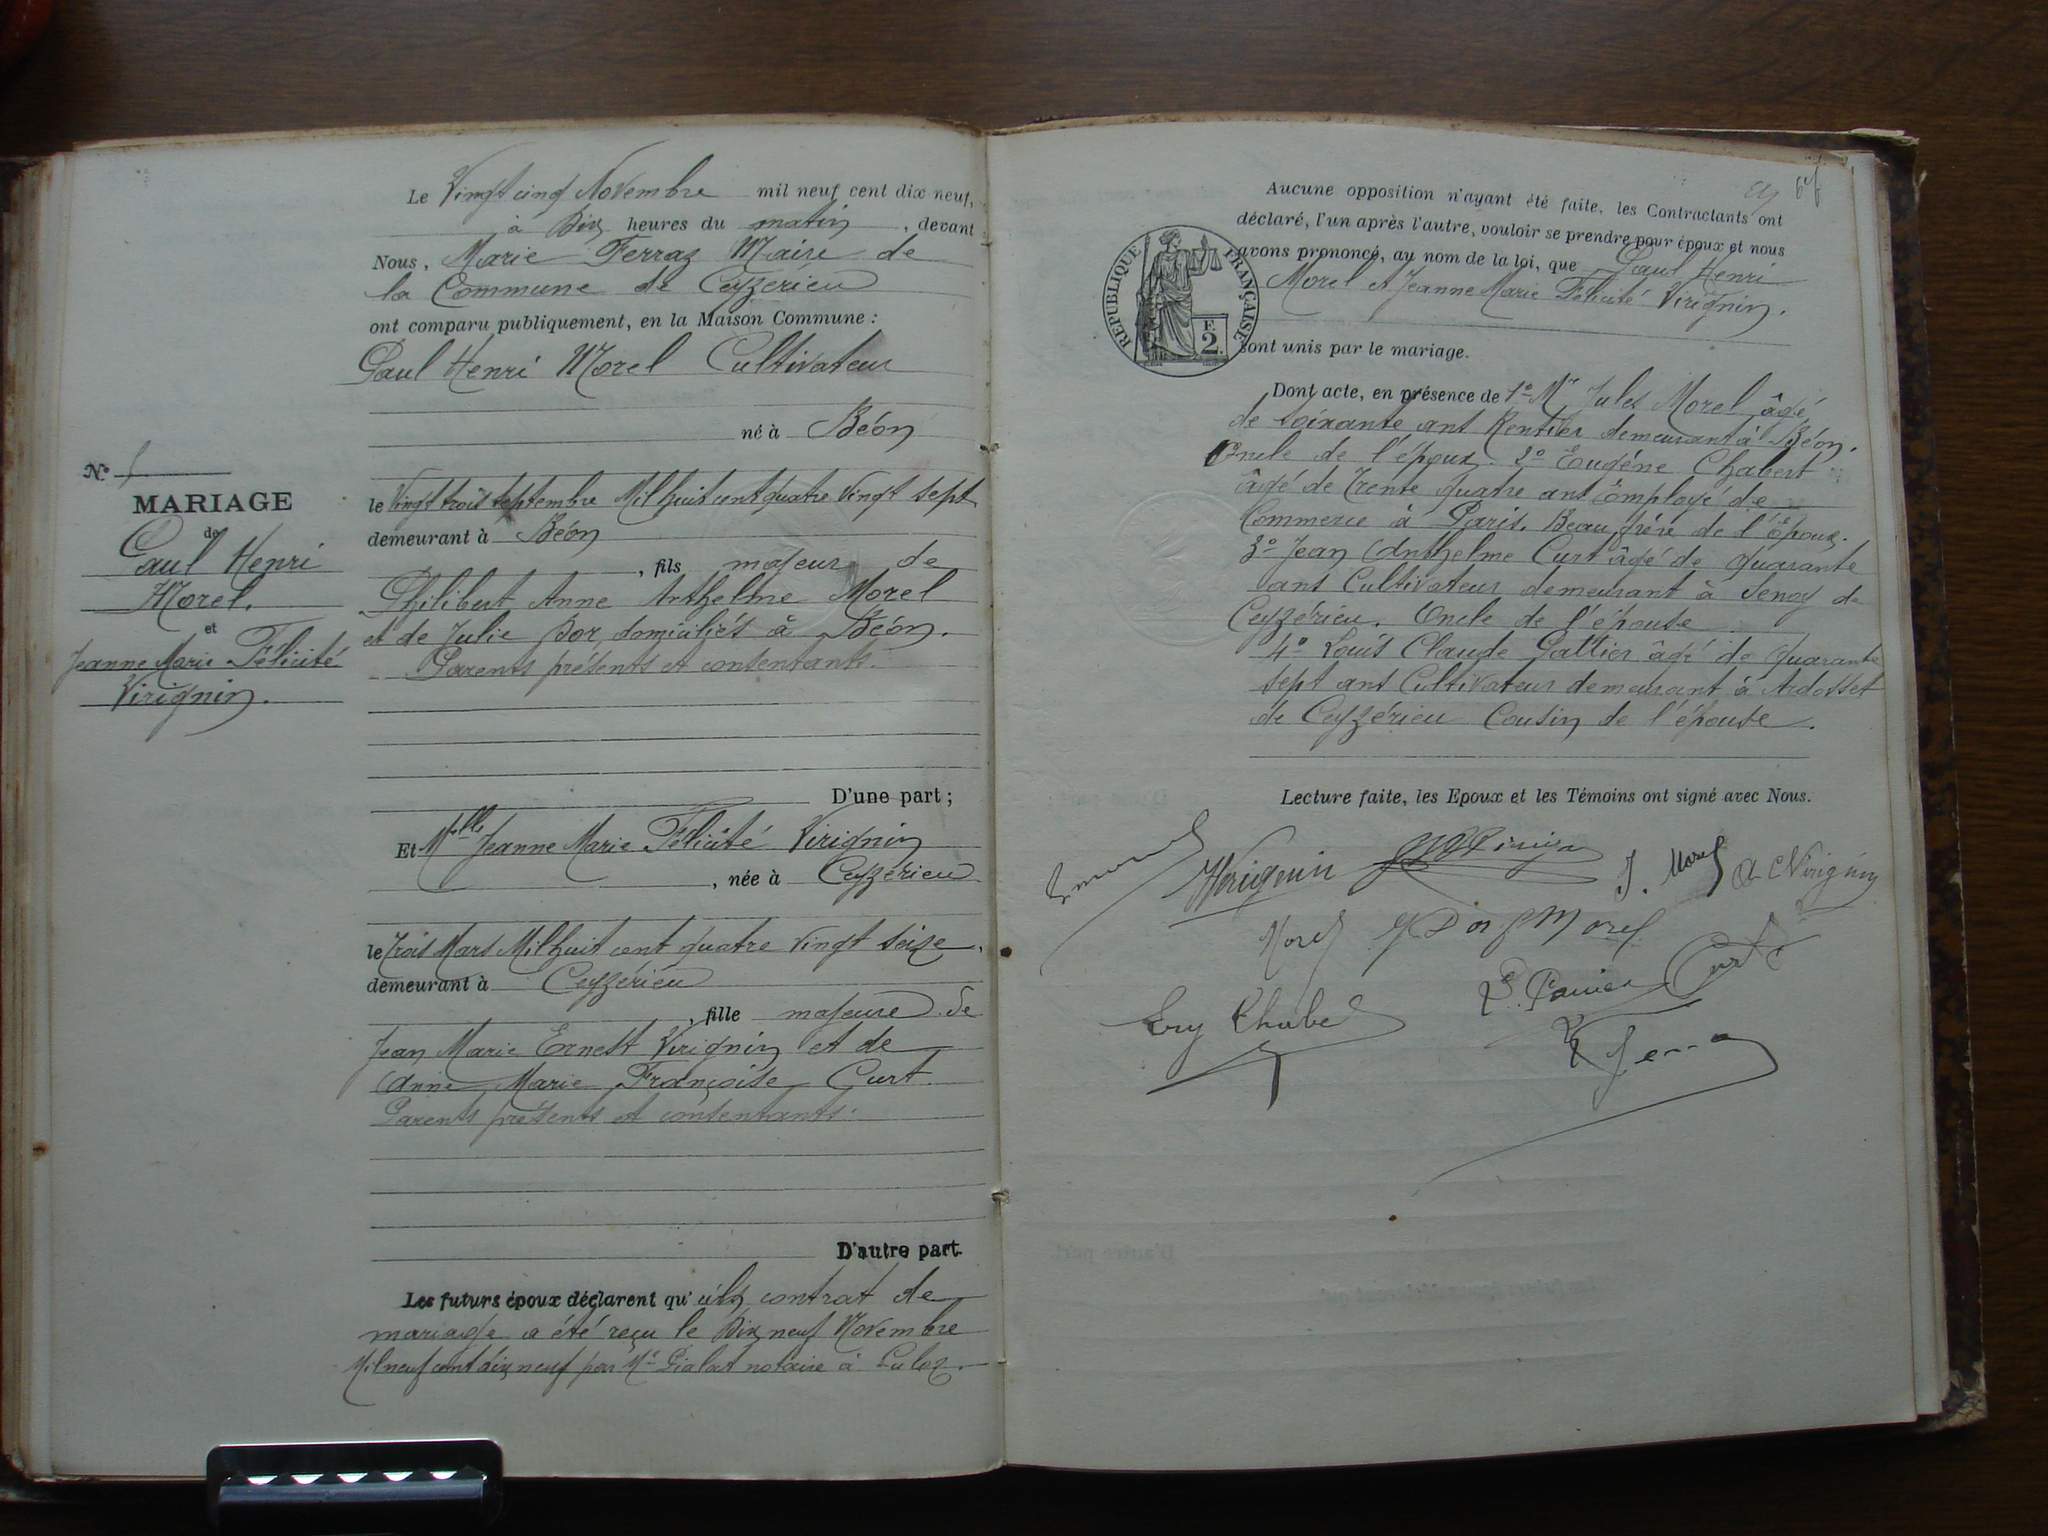 Le Vingt cinq Novembre mil neuf cent dix neuf,
à Dix heures du matin, devant
Nous, Marie Ferraz Maire de
la Commune de Ceyzérieu
ont comparu publiquement, en la Maison Commune :
Paul Henri Morel Cultivateur
né à Béon
le Vingt trois septembre Mil huit cent quatre Vingt sept
demeurant à Béon
, fils majeur de
Philibert Anne Anthelme Morel
et de Julie Dor, domiciliés à Béon.
Parents présents et consentants.
D'une part ;
Et Melle Jeanne Marie Félicité Virignin
, née à Ceyzérieu
le Trois Mars Mil huit cent quatre vingt seize.
demeurant à Ceyzérieu
, fille majeure de
Jean Marie Ernest Virignin et de
Anne Marie Françoise Curt.
Parents présents et consentants.
D'autre part.
Les futurs époux déclarent qu' contrat de
mariage a été reçu le Dix neuf Novembre
Mil neuf cent dix neuf par Me notaire à Culoz.
N°
MARIAGE
de
Paul Henri
Morel.
et
Jeanne Marie Félicité
Virignin.
Aucune opposition n'ayant été faite, les Contractants ont
déclaré, l'un après l'autre, vouloir se prendre pour époux et nous
avons prononcé, au nom de la loi, que Paul Henri
Morel et Jeanne Marie Félicité Virignin.
sont unis par le mariage.
REPUBLIQUE FRANÇAISE
F. 2.
Dont acte, en présence de 1° Mr Jules Morel âgé
de soixante ans Rentier demeurant à Béon.
Oncle de l'époux. 2° Eugène Chabert
âgé de Trente quatre ans Employé de
Commerce à Paris. Beau frère de l'Epoux.
3° Jean Anthelme Curt âgé de quarante
ans Cultivateur demeurant à Senoy de
Ceyzérieu. Oncle de l'épouse
4° Louis Claude âgé de quarante
sept ans Cultivateur demeurant à Ardosset
de Ceyzérieu Cousin de l'épouse.
Lecture faite, les Epoux et les Témoins ont signé avec Nous.
Virignin
J. Morel
Virignin
Morel
Dor f Morel
Curt
Eug Chabert
Ferraz